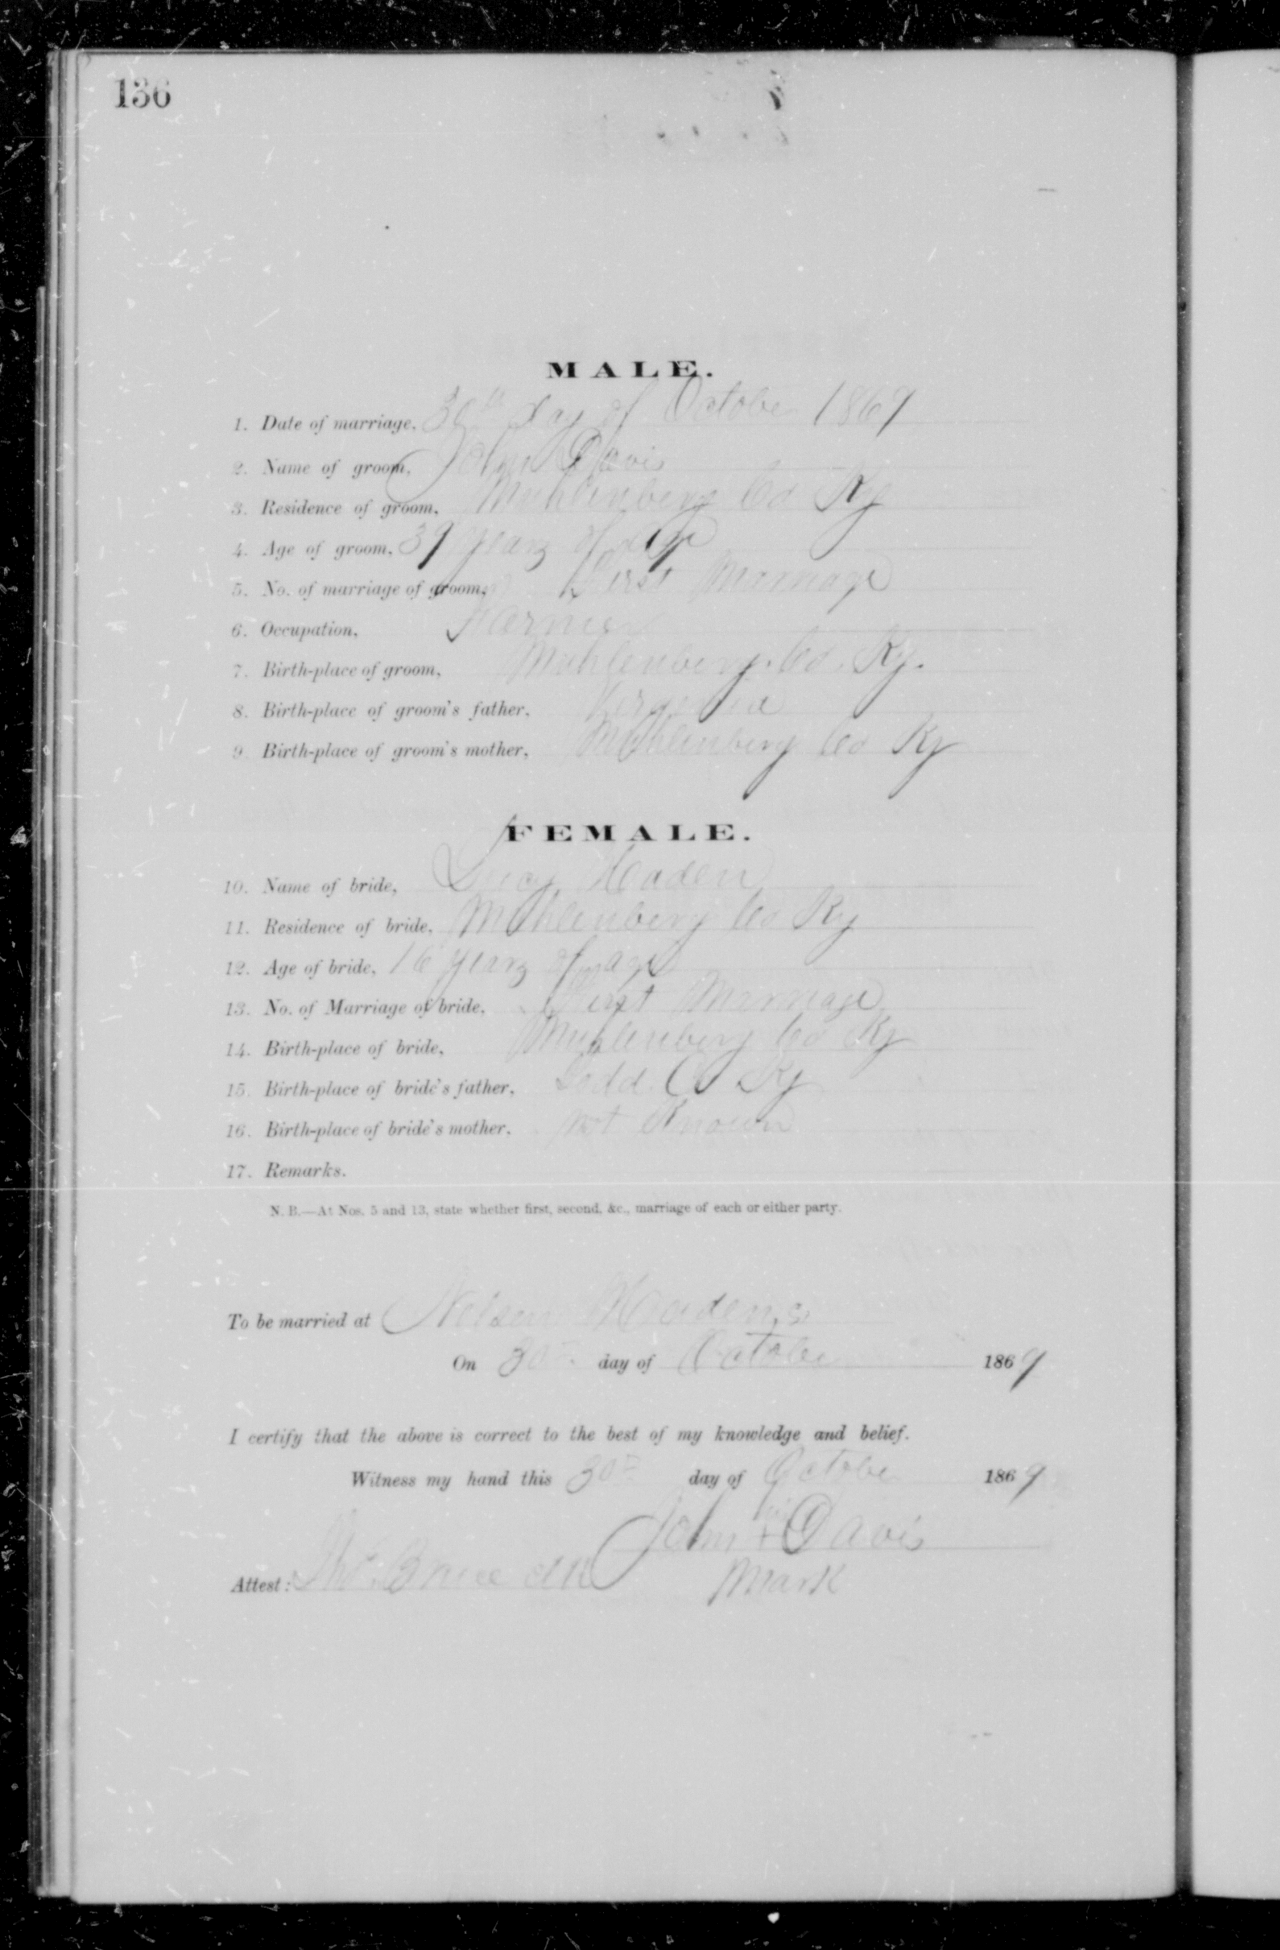 136
MALE.
1. Date of marriage, 30th day of Octobe 1869
2. Name of groom, John Davis
3. Residence of groom, Muhlenberg Co Ky
4. Age of groom, 39 years of age
5. No. of marriage of groom, First Marriage
6. Occupation, Farmer
7. Birth-place of groom, Muhlenberg Co. Ky.
8. Birth-place of groom's father, Virginia
9. Birth-place of groom's mother, Muhlenberg Co Ky
FEMALE.
10. Name of bride, Lucy Headen
11. Residence of bride, Muhlenberg Co Ky
12. Age of bride, 16 years of age
13. No. of Marriage of bride, First Marriage
14. Birth-place of bride, Muhlenberg Co Ky
15. Birth-place of bride's father, Todd Co Ky
16. Birth-place of bride's mother, not Known
17. Remarks.
N. B.—At Nos. 5 and 13, state whether first, second, &c., marriage of each or either party.
To be married at Nelson Headens
On 30th day of Octobe 1869
I certify that the above is correct to the best of my knowledge and belief.
Witness my hand this 30th day of Octobe 1869
John his + Davis
Mark
Attest: Bruce clk